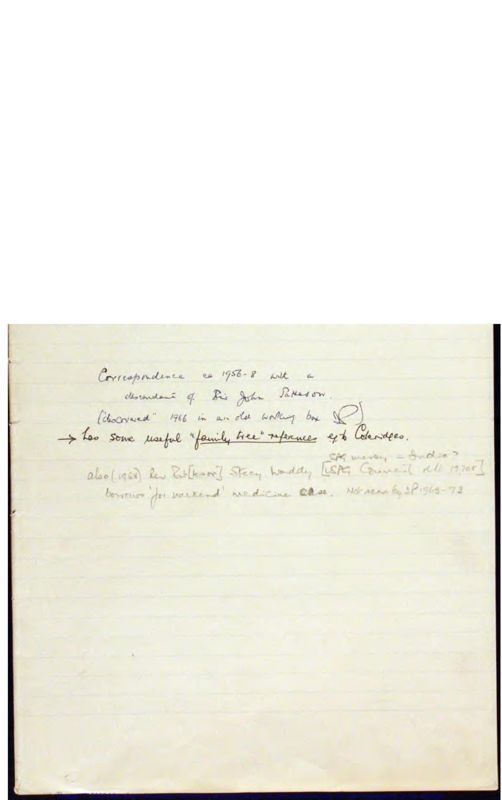 Correspondence ca 1956-8 with a
descendant of Sir John Patteson.
["discovered" 1966 in an old working box SP]
→ has some useful "family tree" references esp Coleridges.
SPG
also (1968) Rev Pat[teson] Stacy Waddy [USPG Council till 1970s]
borrows 'for weekend' medicine case. Not seen by SP 1969-72